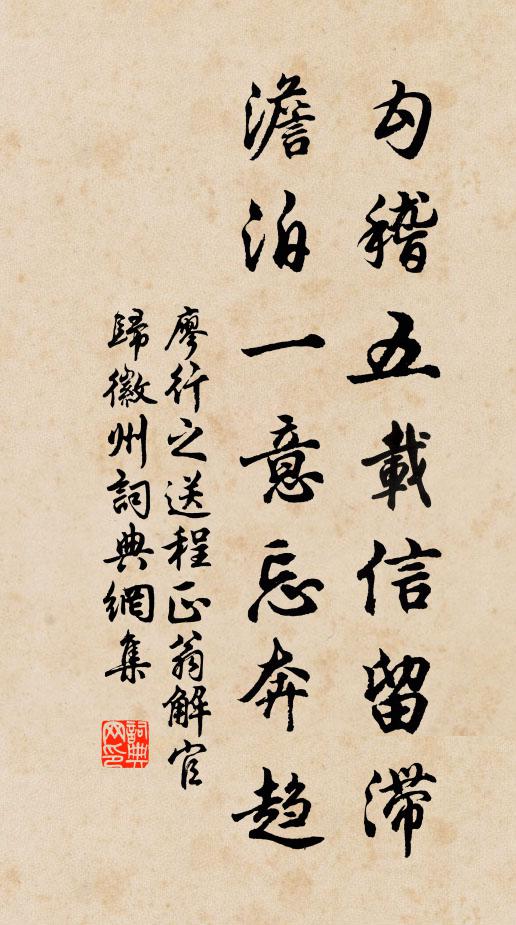 勾稽五載信留滯
澹泊一意忘奔趨
廖行之送程正翁解官
歸徽州詞典網集
詞典
网印